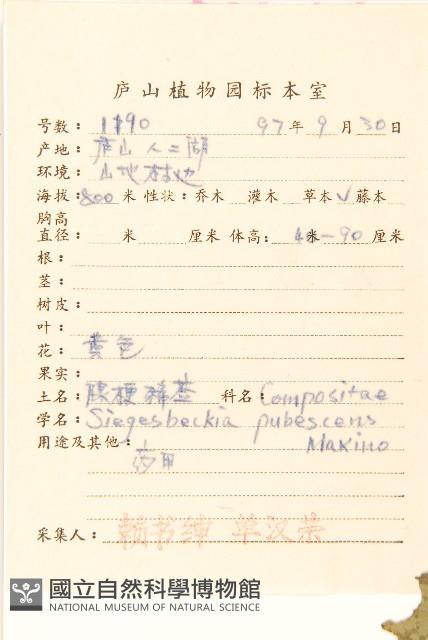 庐山植物园标本室
号数: 1190 97年 9月 30日
产地: 庐山人工湖
环境: 山地林边
海拔: 800 米 性状: 乔木 灌木 草本√ 藤本
胸高
直径: 米 厘米 体高: 90 厘米
根:
茎:
树皮:
叶:
花: 黄色
果实:
土名: 腺梗豨莶 科名: Compositae
学名: Siegesbeckia pubescens
用途及其他: Makino
药用
采集人: 赖书绅 单汉荣
國立自然科學博物館
NATIONAL MUSEUM OF NATURAL SCIENCE